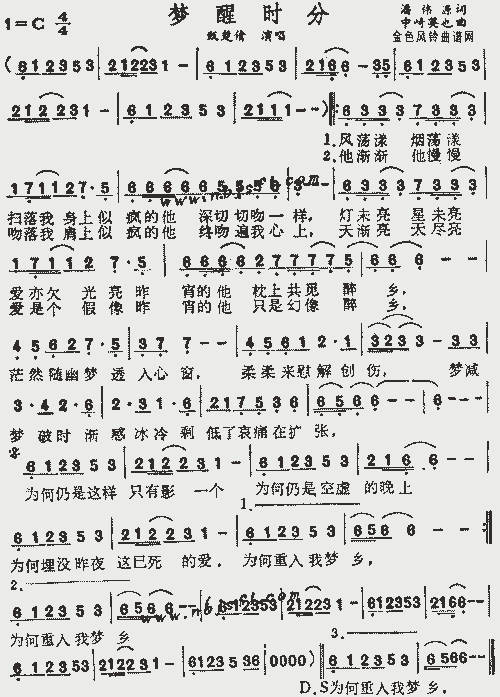 梦醒时分
1=C 4/4
潘伟源词
中崎英也曲
甄楚倩 演唱
金色风铃曲谱网
( 6 1 2 3 5 3 | 2 1 2 2 3 1 - | 6 1 2 3 5 3 | 2 1 6 6 - 3 5 | 6 1 2 3 5 3 |
2 1 2 2 3 1 - | 6 1 2 3 5 3 | 2 1 1 1 - - ) ‖: 6 3 3 3 7 3 3 3 |
1.风荡漾 烟荡漾
2.他渐渐 他慢慢
1 7 1 1 2 7 · 5 | 6 6 6 6 6 5 5 5 5 6 | 3 - - - | 6 3 3 3 7 3 3 3 |
扫落我 身上似 疯的他 深切切吻一样, 灯未亮 星未亮
吻落我 肩上似 疯的他 终吻遍我心上, 天渐亮 天尽亮
1 7 1 1 2 7 · 5 | 6 6 6 6 2 7 7 7 7 5 | 6 - - - |
爱亦欠 光亮昨 宵的他 枕上共觅 醉 乡,
爱是个 假像昨 宵的他 只是幻像 醉 乡,
4 5 6 2 7 · 5 | 3 7 7 - - | 4 4 5 6 1 2 · 1 | 3 2 3 3 - 3 3 |
茫然随幽梦 透 入心 窗, 柔柔来慰 解 创 伤, 梦减
3 · 4 2 · 6 | 2 · 3 1 · 6 | 2 1 7 5 3 6 | 6 5 6 6 - - | 6 - - - |
梦 破时 渐 感 冰 冷 剩 低了哀痛在扩 张,
6 1 2 3 5 3 | 2 1 2 2 3 1 - | 6 1 2 3 5 3 | 2 1 6 6 - - |
为何仍是这样 只有影 一个 为何仍是空虚 的晚上
1.
6 1 2 3 5 3 | 2 1 2 2 3 1 - | 6 1 2 3 5 3 | 6 5 6 6 - - :‖
为何埋没昨夜 这已死 的爱, 为何重入我梦 乡,
2.
6 1 2 3 5 3 | 6 5 6 6 - - | ( 6 1 2 3 5 3 | 2 1 2 2 3 1 - | 6 1 2 3 5 3 | 2 1 6 6 - - |
为何重入我梦 乡
3.
6 1 2 3 5 3 | 2 1 2 2 3 1 - | 6 1 2 3 5 3 6 | 0 0 0 0 ) ‖ 6 1 2 3 5 3 | 6 5 6 6 - - ‖
D.S 为何重入我梦 乡,